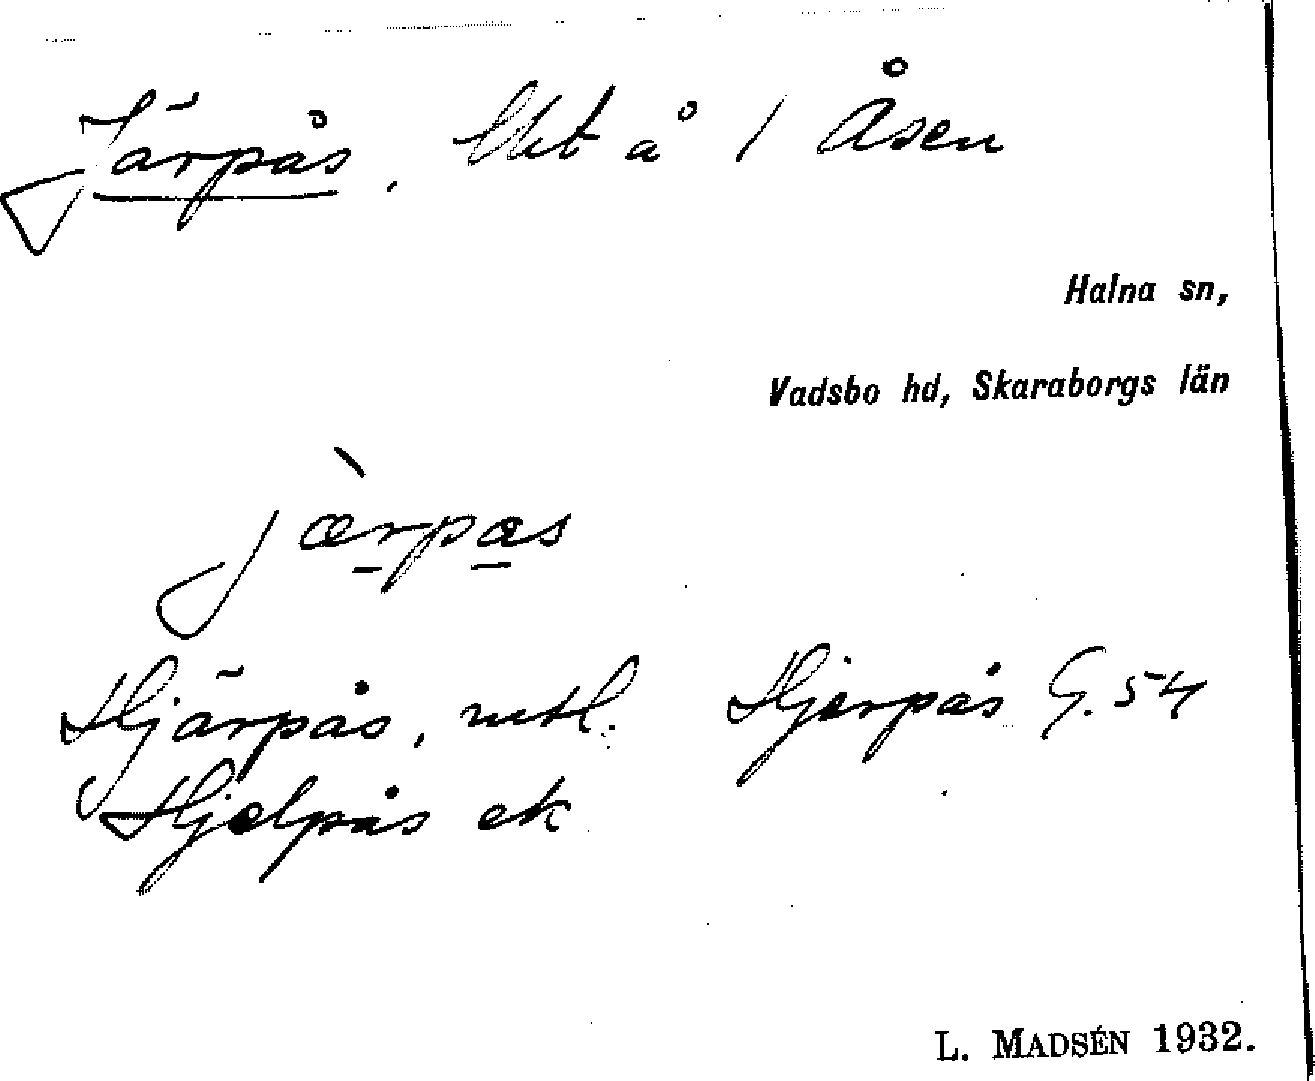 Järpås, lht å 1 Åsen
Halna sn,
Vadsbo hd, Skaraborgs län
jæ̀rpas
Hjärpås, mtl. Hjerpås G. 54
Hjelpås ek
L. MADSÉN 1932.